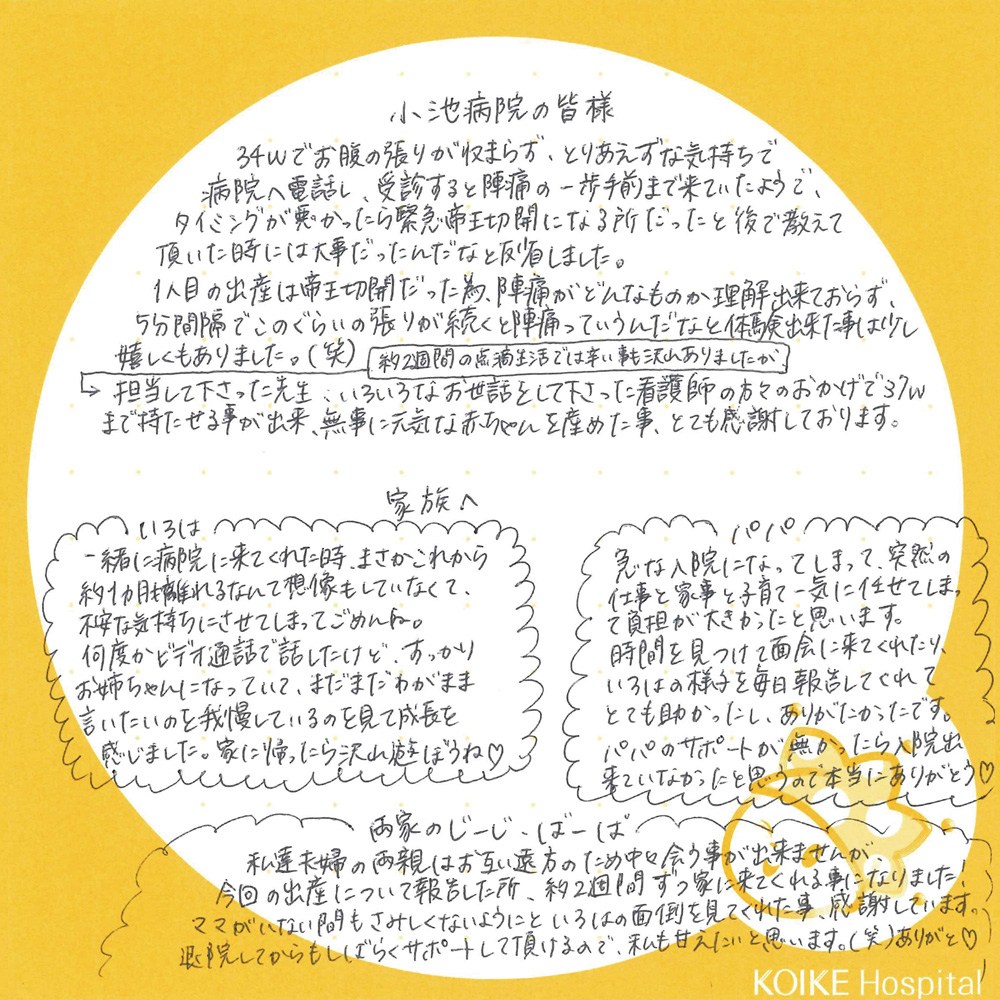 小池病院の皆様
34wでお腹の張りが収まらず、とりあえずな気持ちで
病院へ電話し、受診すると陣痛の一歩手前まで来ていたようで、
タイミングが悪かったら緊急帝王切開になる所だったと後で教えて
頂いた時には大事だったんだなと反省しました。
1人目の出産は帝王切開だった為、陣痛がどんなものか理解出来ておらず、
5分間隔でこのぐらいの張りが続くと陣痛っていうんだなと体験出来た事は少し
嬉しくもありました。(笑) 約2週間の点滴生活では辛い事も沢山ありましたが、
→ 担当して下さった先生、いろいろなお世話をして下さった看護師の方々のおかげで37w
まで持たせる事が出来、無事に元気な赤ちゃんを産めた事、とても感謝しております。
家族へ
いろは
一緒に病院に来てくれた時、まさかこれから
約1カ月も離れるなんて想像もしていなくて、
不安な気持ちにさせてしまってごめんね。
何度かビデオ通話で話したけど、すっかり
お姉ちゃんになっていて、まだまだわがまま
言いたいのを我慢しているのを見て成長を
感じました。家に帰ったら沢山遊ぼうね♡
パパ
急な入院になってしまって、突然の
仕事と家事と子育て一気に任せてしまっ
て負担が大きかったと思います。
時間を見つけて面会に来てくれたり、
いろはの様子を毎日報告してくれて
とても助かったし、ありがたかったです。
パパのサポートが無かったら入院出
来ていなかったと思うので本当にありがとう♡
両家のじーじ・ばーば
私達夫婦の両親はお互い遠方のため中々会う事が出来ませんが、
今回の出産について報告した所、約2週間ずつ家に来てくれる事になりました!
ママがいない間もさみしくないようにといろはの面倒を見てくれた事、感謝しています。
退院してからもしばらくサポートして頂けるので、私も甘えたいと思います。(笑)ありがと♡
KOIKE Hospital